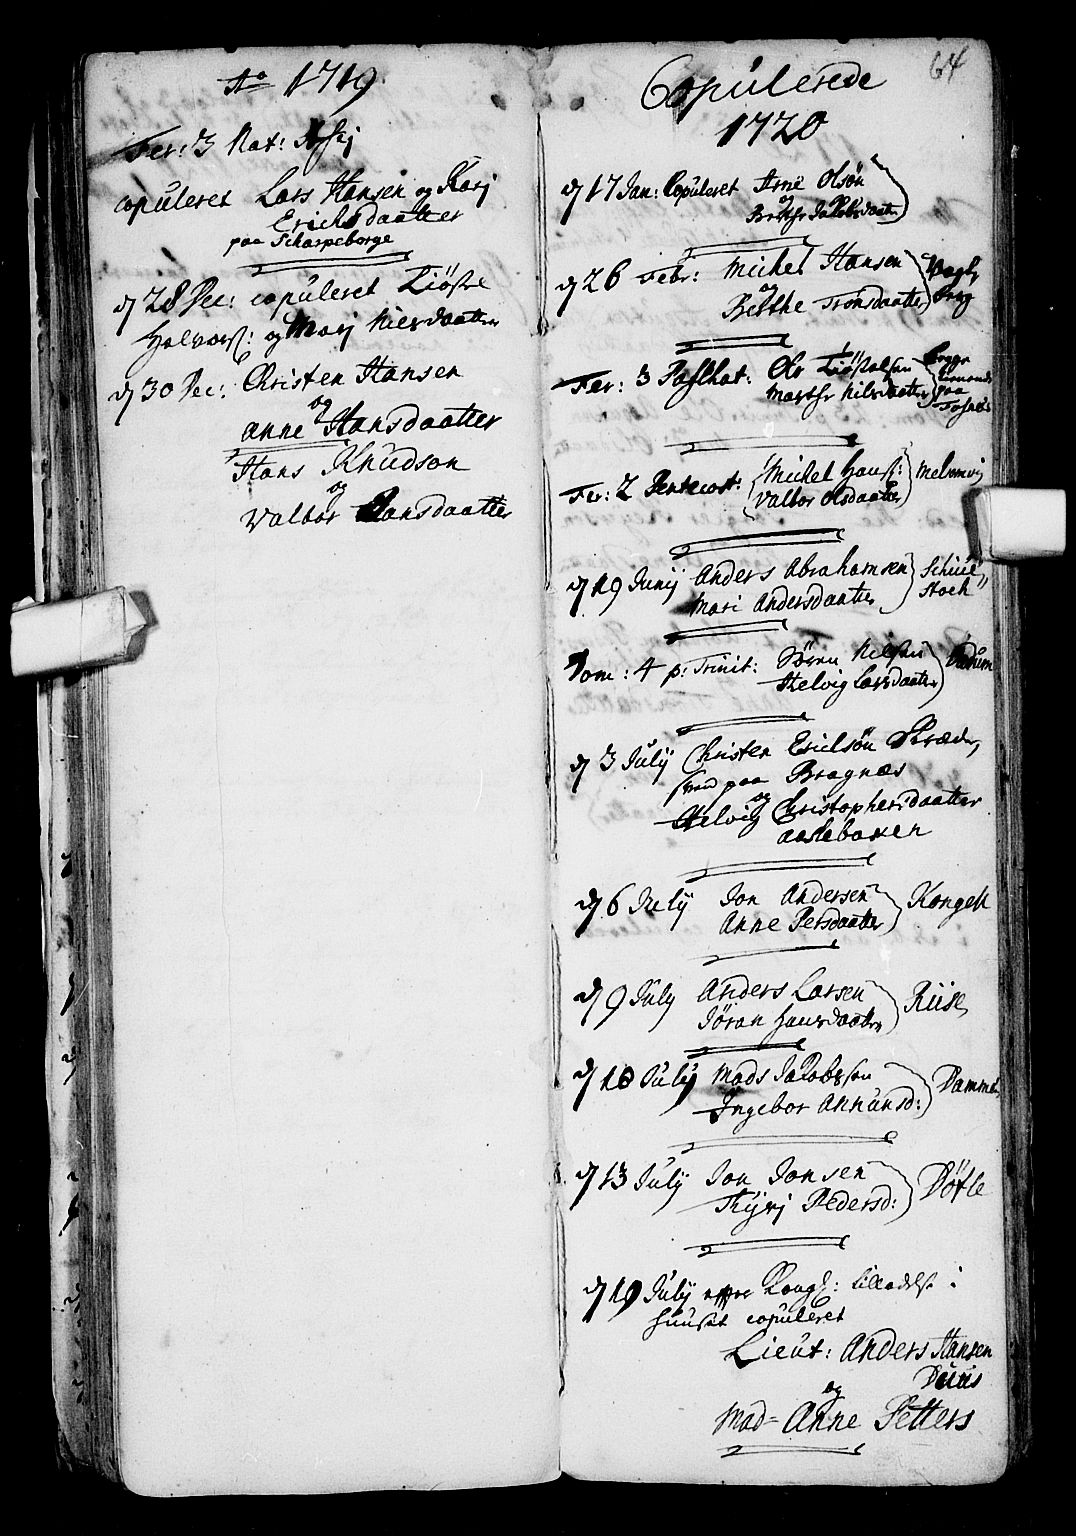 Ao 1719
Fer: 3 Nat:
copuleret Lars Hansen og Karj
Erichsdaatter
paa Scharpeborge
d 28 Dec: copuleret Liöstre
Halvors: og Marj Nielsdaatter
d 30 Dec: Christen Hansen
og
Anne Hansdaatter
Hans Knudson
og
Valbor Hansdaatter
64
Copulerede
1720
d 17 Jan: Copuleret Arne Olsön
og
Berthe Jacobsdaatter
d 26 Febr: Michel Hansen
og
Berthe Tronsdaatter
Fer: 3 Paschat: Ole Liöstelsen
Marthe Nilsdaatter
paa
Fosnes
Fer: 2 Pentecost: Michel Hans:
Valbor Olsdaatter
d 19 Junij Anders Abrahamsen
Mari Andersdaatter
Schiue
stoch
Dom: 4 p: Trinit: Sören Nelsen
Helvig Larsdaatter
d 3 July Christen Erichsön Skræder
paa Bragnæs
og
Helvig Christophersdaatter
Aaslebaken
d 6 July Jon Andersen
Anne Persdaatter
Kongell
d 9 July Anders Larsen
Jöran Hansdaatter
Riise
d 10 July Mads Jacobsson
Ingebor Annunsd:
Dammen
d 13 July Jon Jonsen
Kyrj Pedersd:
Döfle
d 19 July efter Kongl: tilladelse i
huuset copuleret
Lieut: Anders Hansen
Duus
og
Mad= Anne Petters